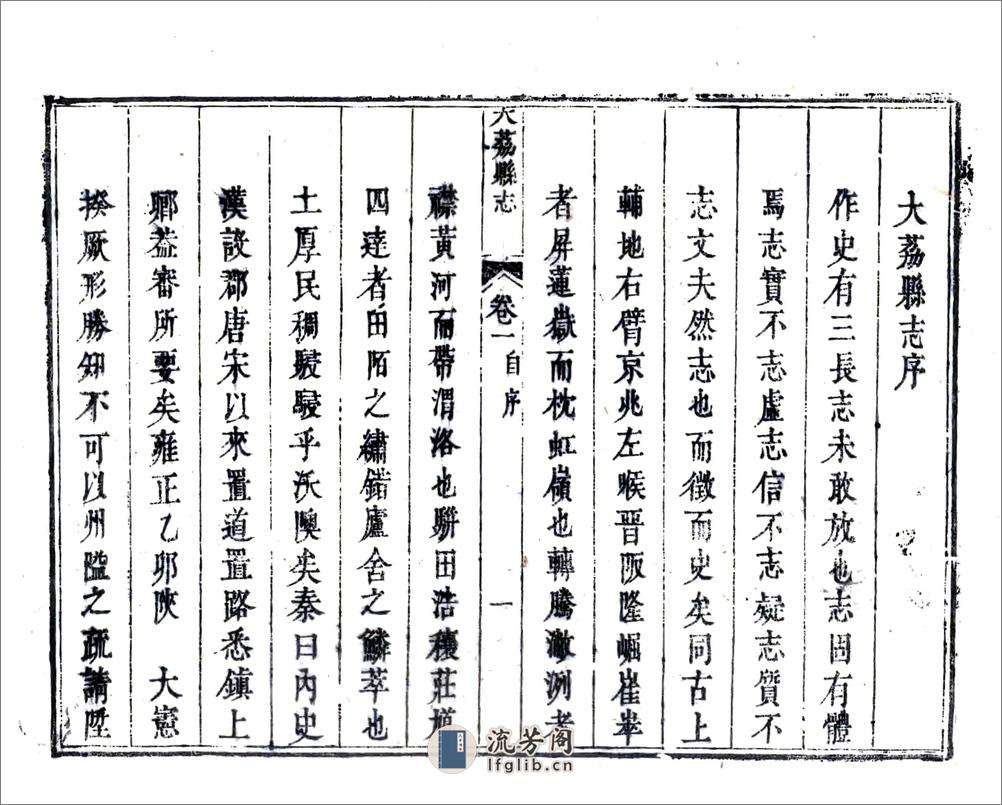 大荔縣志序
作史有三長志未敢放也志固有體
焉志實不志虛志信不志疑志質不
志文夫然志也而徵而史矣同古上
輔地右臂京兆左喉晉阪隆崛崔崒
者屏蓮嶽而枕虹嶺也轉騰潎洌者
大荔縣志 卷一 自序 一
襟黃河而帶渭洛也駢田浩穰莊馗
四達者田陌之繡錯廬舍之鱗萃也
土厚民稠駸駸乎沃隩矣秦曰內史
漢設郡唐宋以來置道置路悉鎮上
郷葢審所要矣雍正乙卯陝 大憲
揆厥形勝知不可以州隘之疏請陞
流芳阁
lfglib.cn